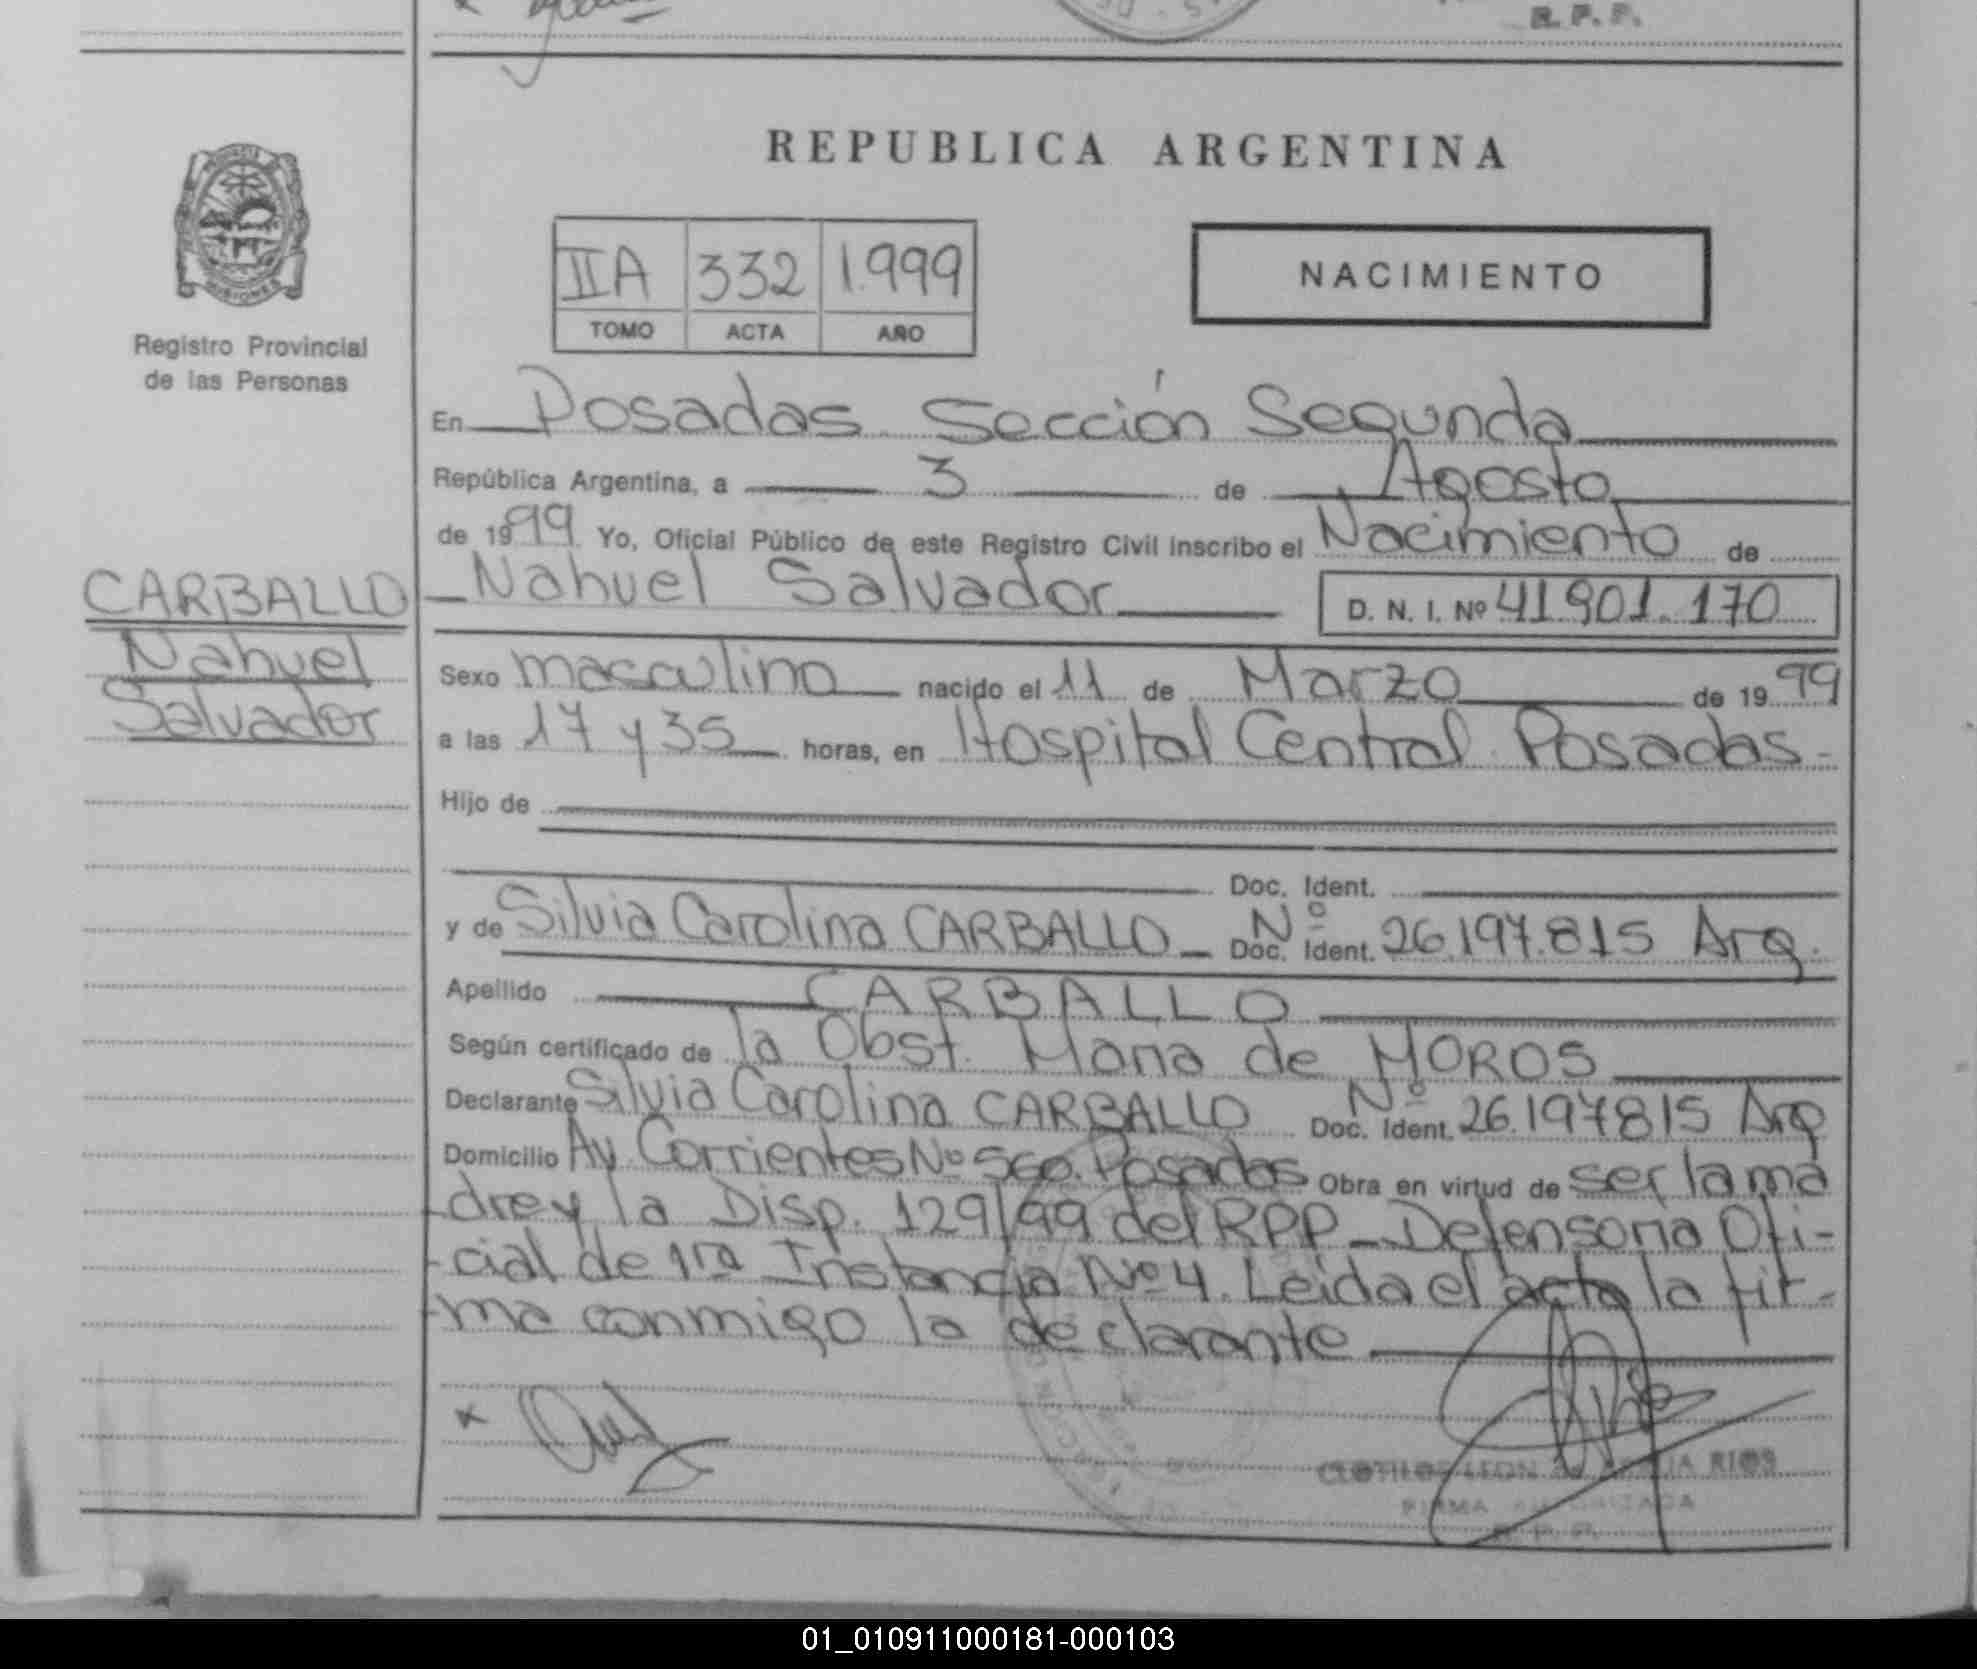 R. P. P.
REPUBLICA ARGENTINA
MISIONES
Registro Provincial
de las Personas
IIA 332 1.999
TOMO ACTA AÑO
NACIMIENTO
En Posadas Sección Segunda
República Argentina, a 3 de Agosto
de 1999 Yo, Oficial Público de este Registro Civil inscribo el Nacimiento de
Nahuel Salvador D. N. I. Nº 41901.170
CARBALLO
Nahuel
Salvador
Sexo masculino nacido el 11 de Marzo de 1999
a las 17 y 35 horas, en Hospital Central Posadas-
Hijo de
Doc. Ident.
y de Silvia Carolina CARBALLO Doc. Ident. Nº 26.197.815 Arg.
Apellido CARBALLO
Según certificado de la Obst. Maria de MOROS
Declarante Silvia Carolina CARBALLO Doc. Ident. Nº 26.197815 Arg
Domicilio Av. Corrientes Nº 560. Posadas Obra en virtud de ser la ma
-dre y la Disp. 129/99 del RPP-Defensoria Ofi-
-cial de 1ra Instancia Nº 4. Leida el acta la fir-
-ma conmigo la declarante
CLOTILDE LEON RIOS
FIRMA AUTORIZADA
R. P. P.
01_010911000181-000103